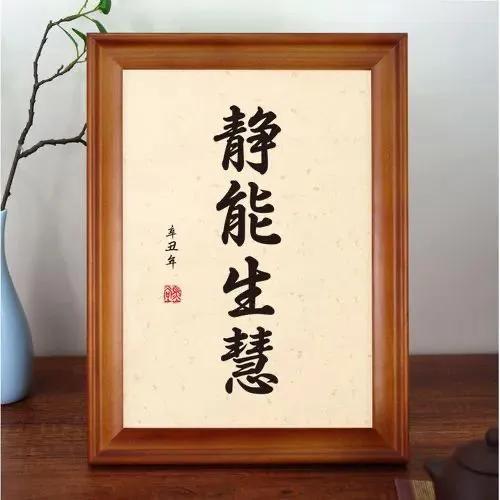 静能生慧
辛丑年